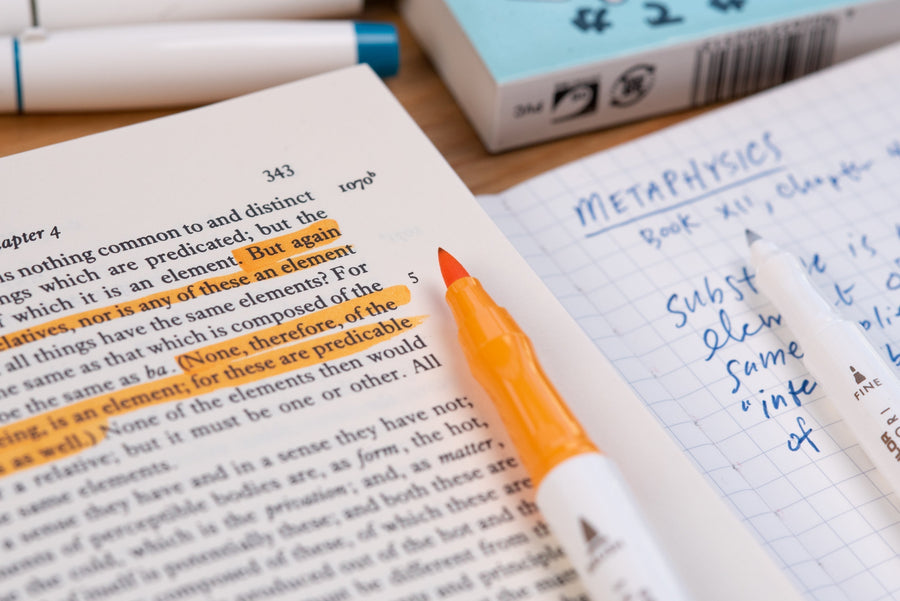 343
1070ᵇ
apter 4
is nothing common to and distinct
ngs which are predicated; but the
f which it is an element. But again
elatives, nor is any of these an element
all things have the same elements? For
5
he same as that which is composed of the
be the same as ba. (None, therefore, of the
eing, is an element; for these are predicable
s as well.) None of the elements then would
r a relative; but it must be one or other. All
same elements.
a sense they have and in a sense they have not;
ments of perceptible bodies are, as form, the hot,
the cold, which is the privation; and, as matter,
of itself is potentially these; and both these are
composed of these, of which these are
produced out of the hot and the
must be different from the
and principle
METAPHYSICS
Book XII, Chapter 4
subst e is
elem t
same
"inte
of
FINE
# 2 #
PVC